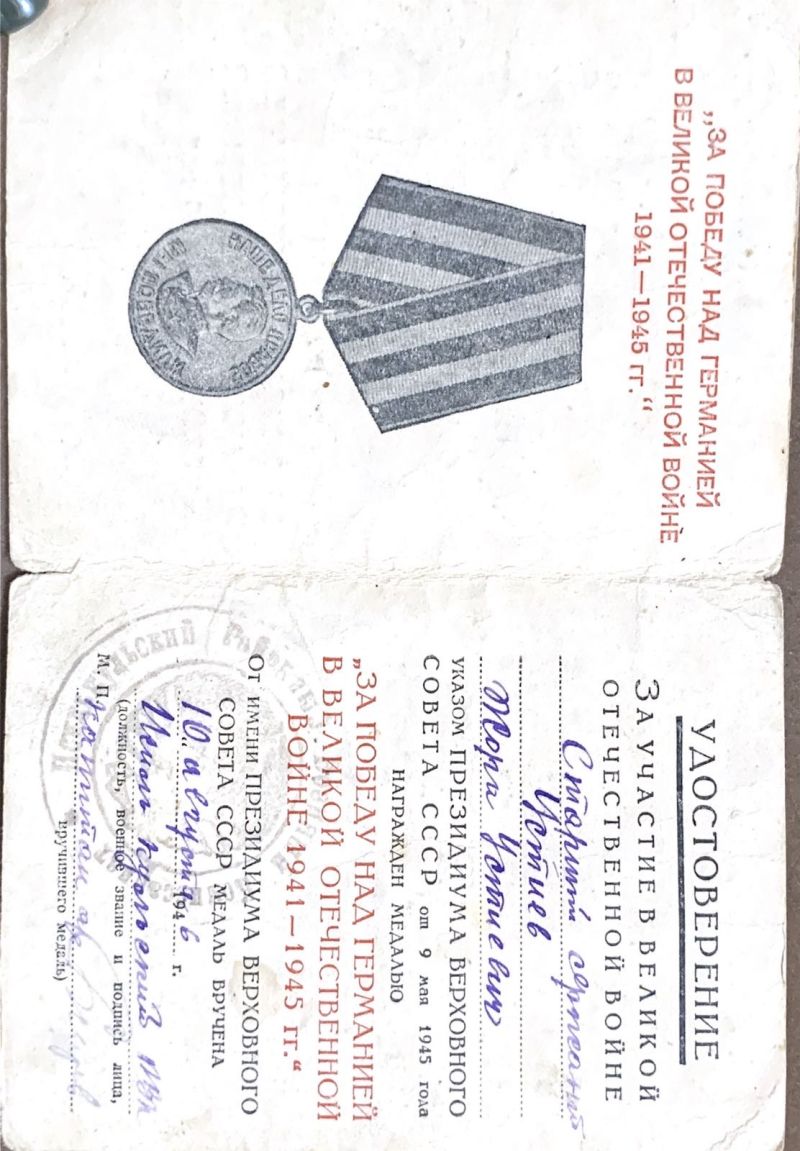 „ЗА ПОБЕДУ НАД ГЕРМАНИЕЙ
В ВЕЛИКОЙ ОТЕЧЕСТВЕННОЙ ВОЙНЕ
1941—1945 гг.“
НАШЕ ДЕЛО ПРАВОЕ
МЫ ПОБЕДИЛИ
УДОСТОВЕРЕНИЕ
ЗА УЧАСТИЕ В ВЕЛИКОЙ
ОТЕЧЕСТВЕННОЙ ВОЙНЕ
Старший сержант
Устиев
Жора Устиевич
УКАЗОМ ПРЕЗИДИУМА ВЕРХОВНОГО
СОВЕТА СССР от 9 мая 1945 года
НАГРАЖДЕН МЕДАЛЬЮ
„ЗА ПОБЕДУ НАД ГЕРМАНИЕЙ
В ВЕЛИКОЙ ОТЕЧЕСТВЕННОЙ
ВОЙНЕ 1941—1945 гг.“
От имени ПРЕЗИДИУМА ВЕРХОВНОГО
СОВЕТА СССР МЕДАЛЬ ВРУЧЕНА
„10“ августа 1946 г.
(должность, военное звание и подпись лица,
М. П. капитан
вручившего медаль)